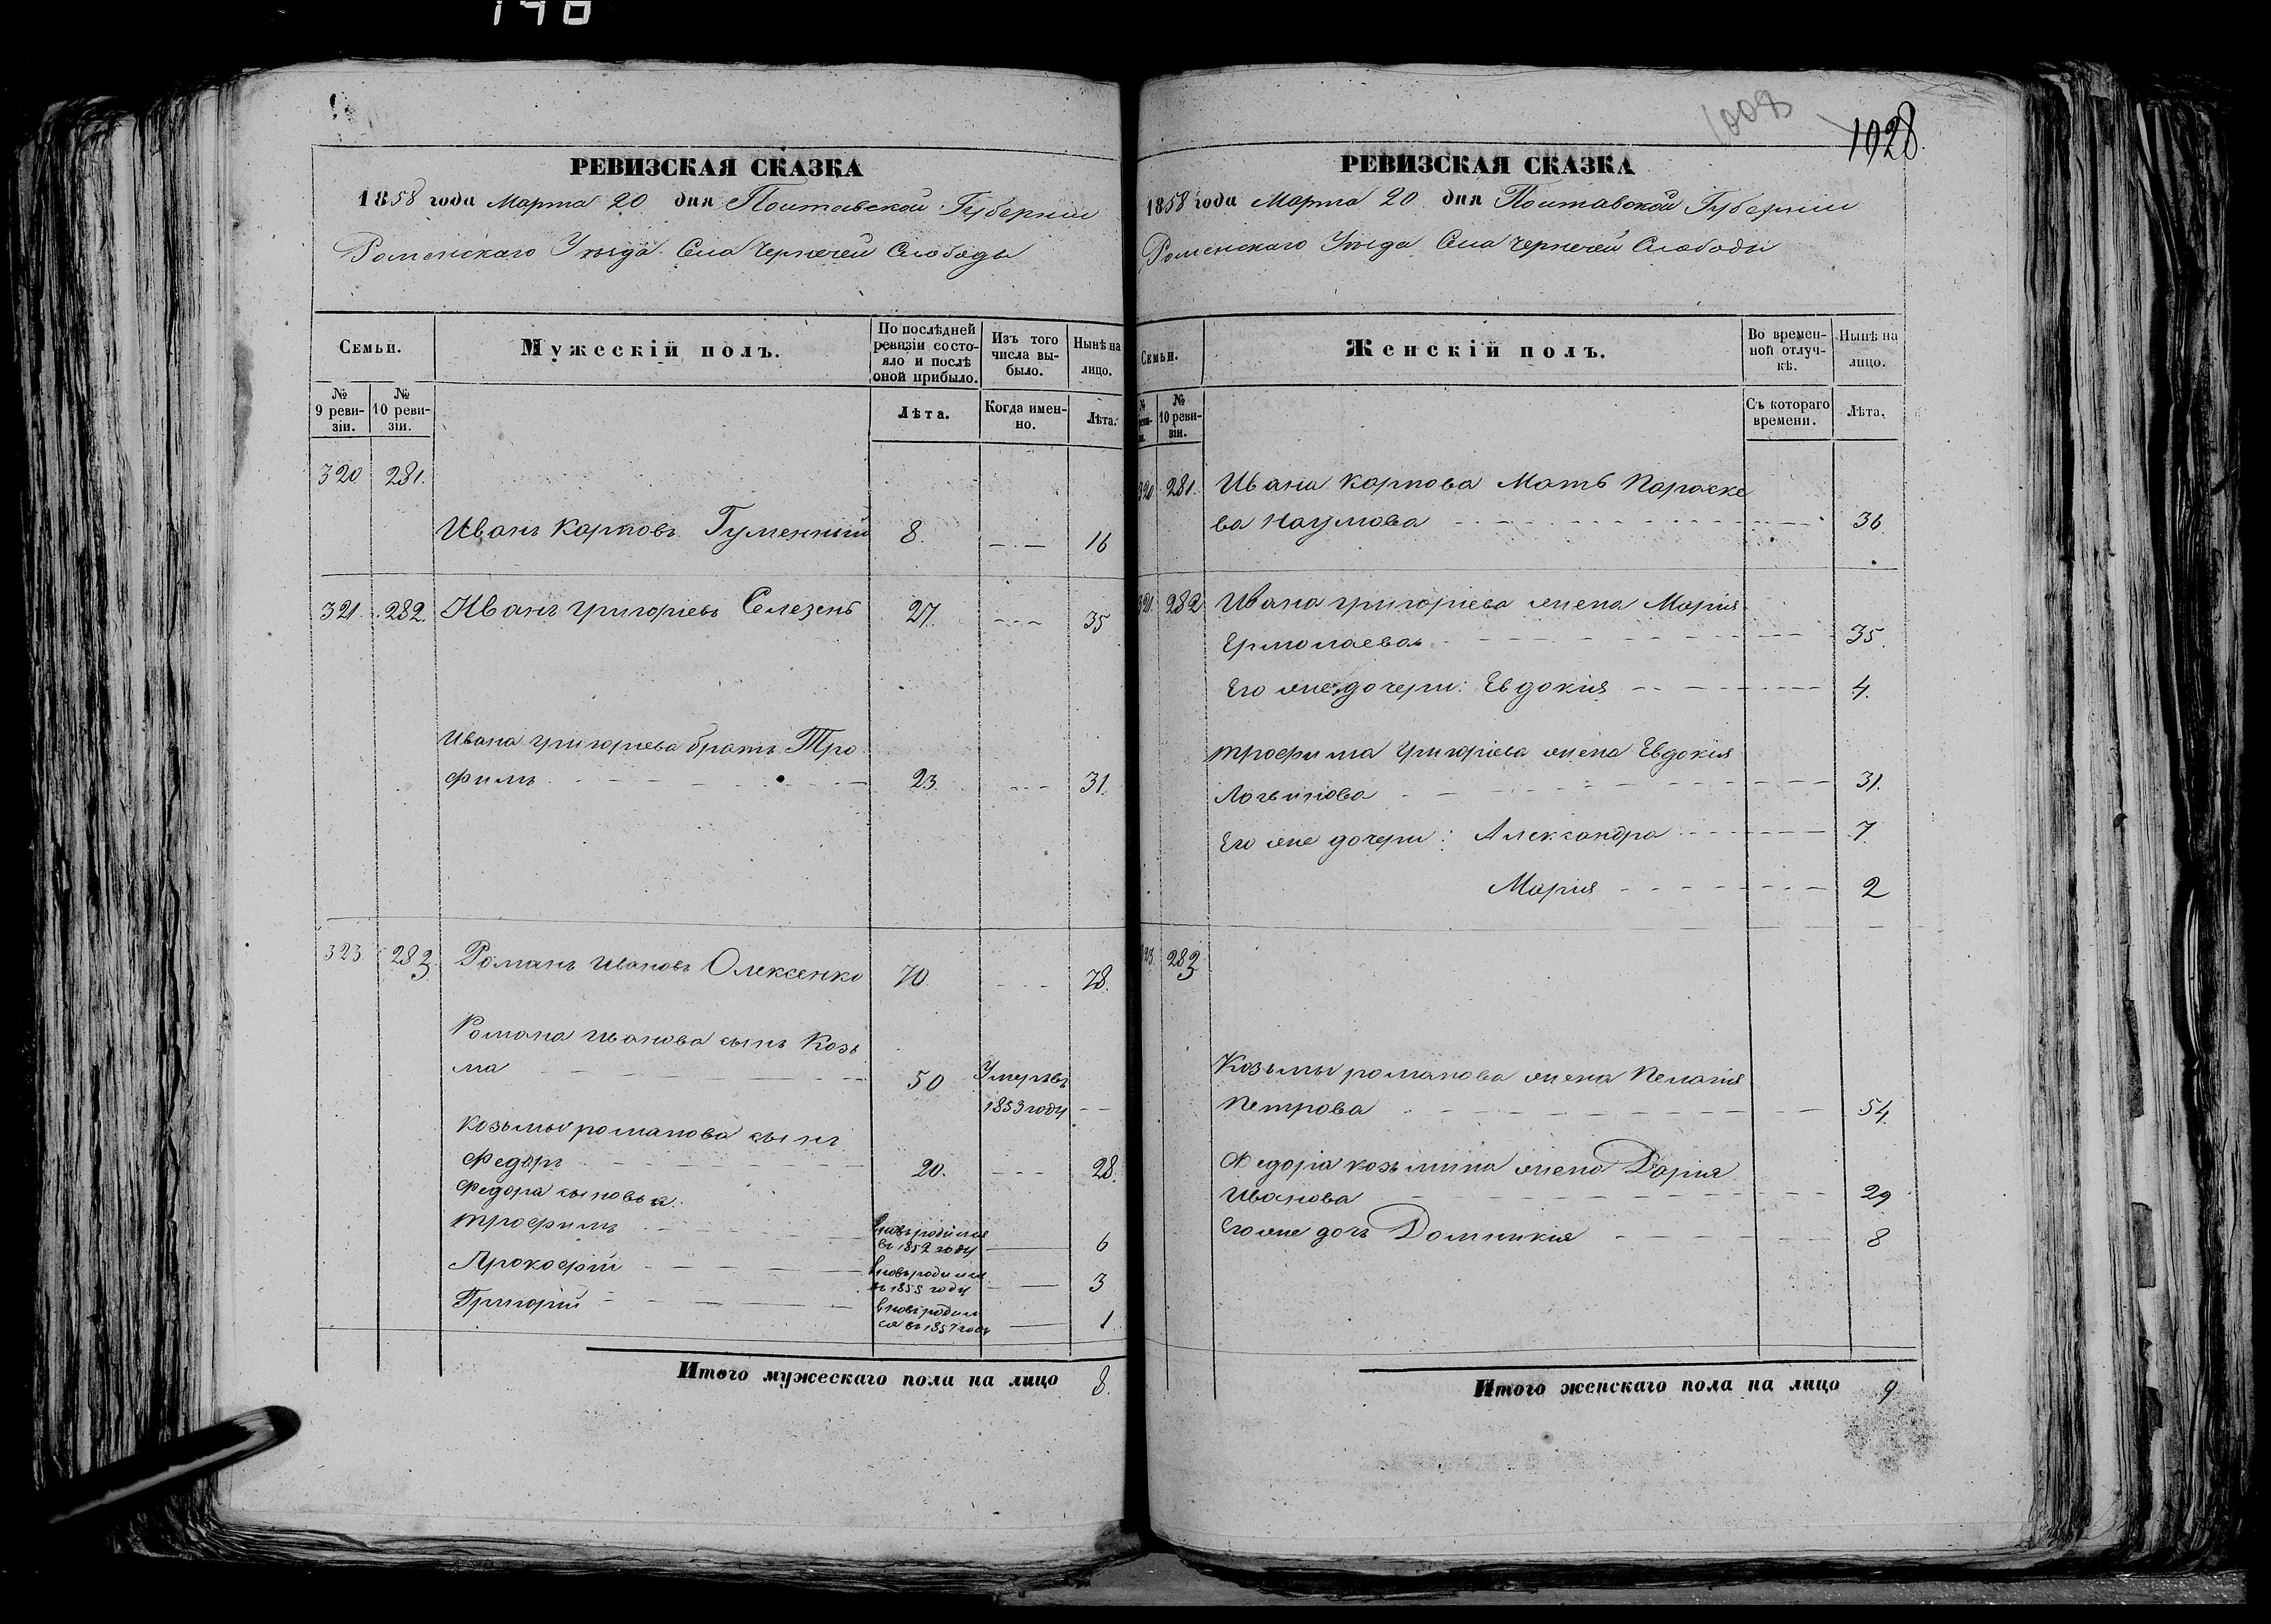 148
РЕВИЗСКАЯ СКАЗКА
1858 года Марта 20 дня Полтавской Губернии
Роменскаго Уѣзда Села Чернечей Слободы
Семьи.
Мужескій полъ.
По послѣдней ревизіи состояло и послѣ оной прибыло.
Изъ того числа выбыло.
Нынѣ на лицо.
№ 9 ревизіи.
№ 10 ревизіи.
Лѣта.
Когда именно.
Лѣта.
320 281.
Иванъ Карповъ Гуменный 8. 16
321. 282. Иванъ Григорьевъ Селезень 27. 35
Ивана Григорьева братъ Тро
фимъ 23. 31.
323. 283. Романъ Ивановъ Олексенко 70. 78.
Романа Иванова сынъ Козь
ма 50 Умеръ въ
1853 году
Козьмы Романова сынъ
Федоръ 20. 28.
Федора сыновья:
Трофимъ вновь родился
въ 1852 году 6
Прокофій вновь родился
въ 1855 году 3
Григорій вновь родил
ся въ 1857 году 1
Итого мужескаго пола на лицо 8.
1009
1028
РЕВИЗСКАЯ СКАЗКА
1858 года Марта 20 дня Полтавской Губернии
Роменскаго Уѣзда Села Чернечей Слободы
Семьи.
Женскій полъ.
Во временной отлучкѣ.
Нынѣ на лицо.
№ 10 ревизіи.
Съ котораго времени.
Лѣта.
320 281. Ивана Карпова Мать Параске
ва Наумова 36
321 282 Ивана Григорьева жена Марія
Ермолаева 35.
Его же дочери: Евдокия 4.
Трофима Григорьева жена Евдокия
Логвинова 31.
Его же дочери: Александра 7
Марія 2
323. 283
Козьмы Романова жена Пелагия
Петрова 54.
Федора Козьмина жена Дарія
Иванова 29
Его же дочь Домникия 8
Итого женскаго пола на лицо 9